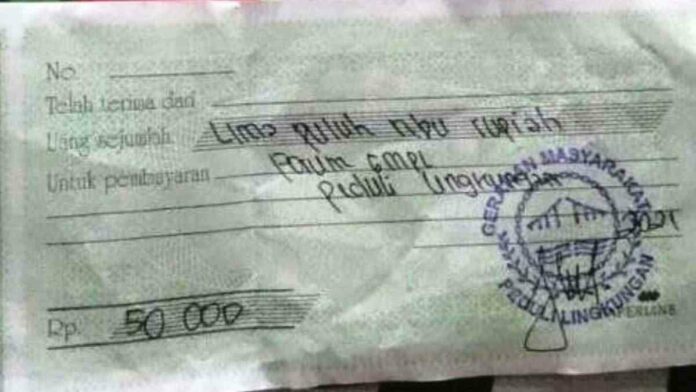 No
Telah terima dari
Uang sejumlah Lima puluh ribu rupiah
Untuk pembayaran Forum GMPL
Peduli lingkungan
2021
Rp. 50 000
GERAKAN MASYARAKAT
PEDULI LINGKUNGAN
PAPERLINE